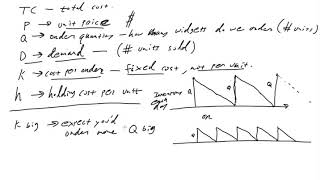 TC - total cost.
P → unit price $
Q → order quantity - how many widgets do we order (# units)
D → demand - (# units sold)
K → cost per order - fixed cost, not per unit.
h → holding cost per unit
Inventory
each
day
Q
Q
K big → expect you'd
order more → Q big
Q